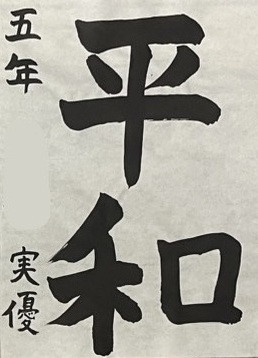 平和
五年
実優